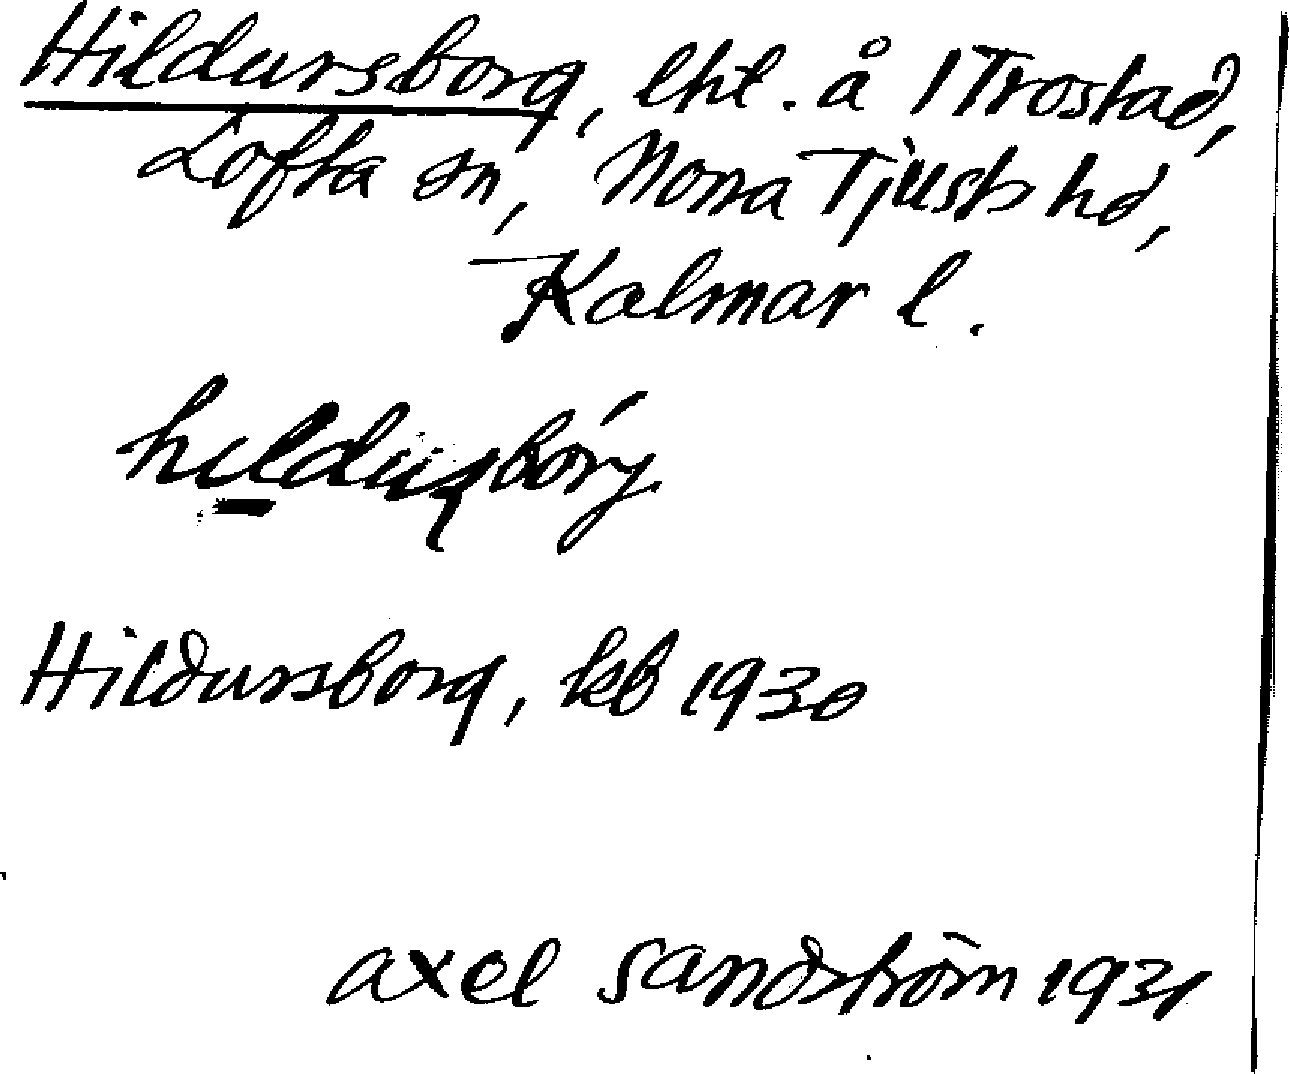 Hildursborg, lht. å 1 Trostad,
Lofta sn, Norra Tjusts hd,
Kalmar l.
Hildursborg, kb 1930
axel sandström 1931